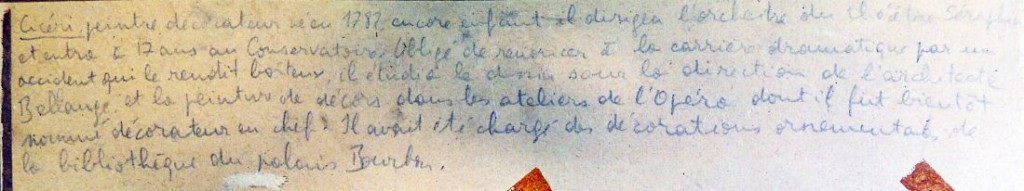 Cicéri, peintre décorateur né en 1782 encore enfant il dirigea l'orchestre du théâtre Séraphin
et entra à 17 ans au Conservatoire. Obligé de renoncer à la carrière dramatique par un
accident qui le rendit boiteux, il étudia le dessin sous la direction de l'architecte
Bellangé, et la peinture de décors dans les ateliers de l'Opéra dont il fut bientôt
nommé décorateur en chef. Il avait été chargé des décorations ornementales de
la bibliothèque du palais Bourbon.